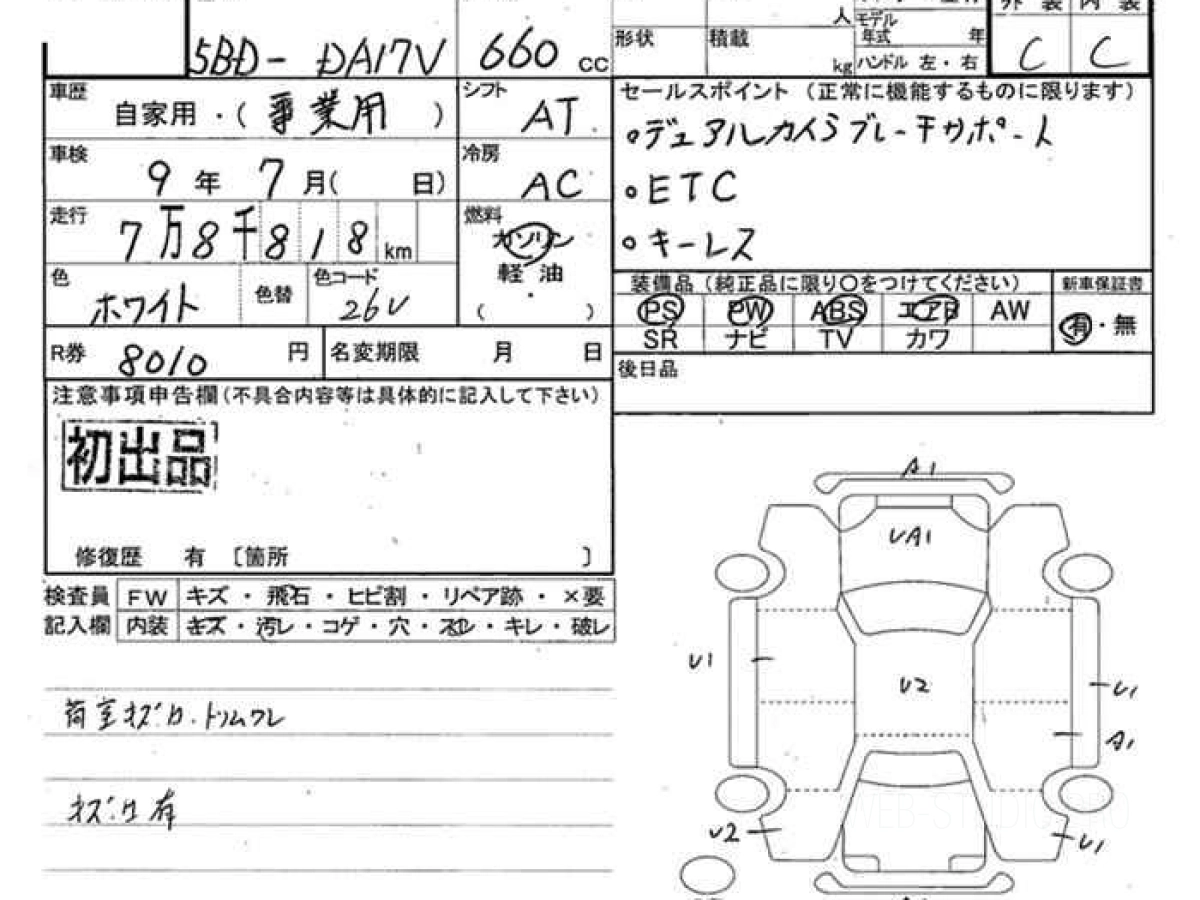 5BD- DA17V 660 cc
人 モデル
年式 年
外装 内装
形状 積載 kg ハンドル 左・右 C C
車歴 自家用・(事業用)
シフト AT
車検 9年7月( 日)
冷房 AC
走行 7万8千818km
燃料 ガソリン
軽油
( ・ )
色 ホワイト 色替 色コード 26U
R券 8010円 名変期限 月 日
セールスポイント(正常に機能するものに限ります)
・デュアルカメラブレーキサポート
・ETC
・キーレス
装備品(純正品に限り○をつけてください) 新車保証書
PS PW ABS エアB AW 有・無
SR ナビ TV カワ
後日品
注意事項申告欄(不具合内容等は具体的に記入して下さい)
初出品
修復歴 有 〔箇所 〕
検査員 FW キズ・飛石・ヒビ割・リペア跡・×要
記入欄 内装 キズ・汚レ・コゲ・穴・スレ・キレ・破レ
荷室キズ・凹・トリムワレ
キズ・凹有
A1
UA1
U1
U2
U1
A1
U2
U1
WEB-STUDIO.PRO